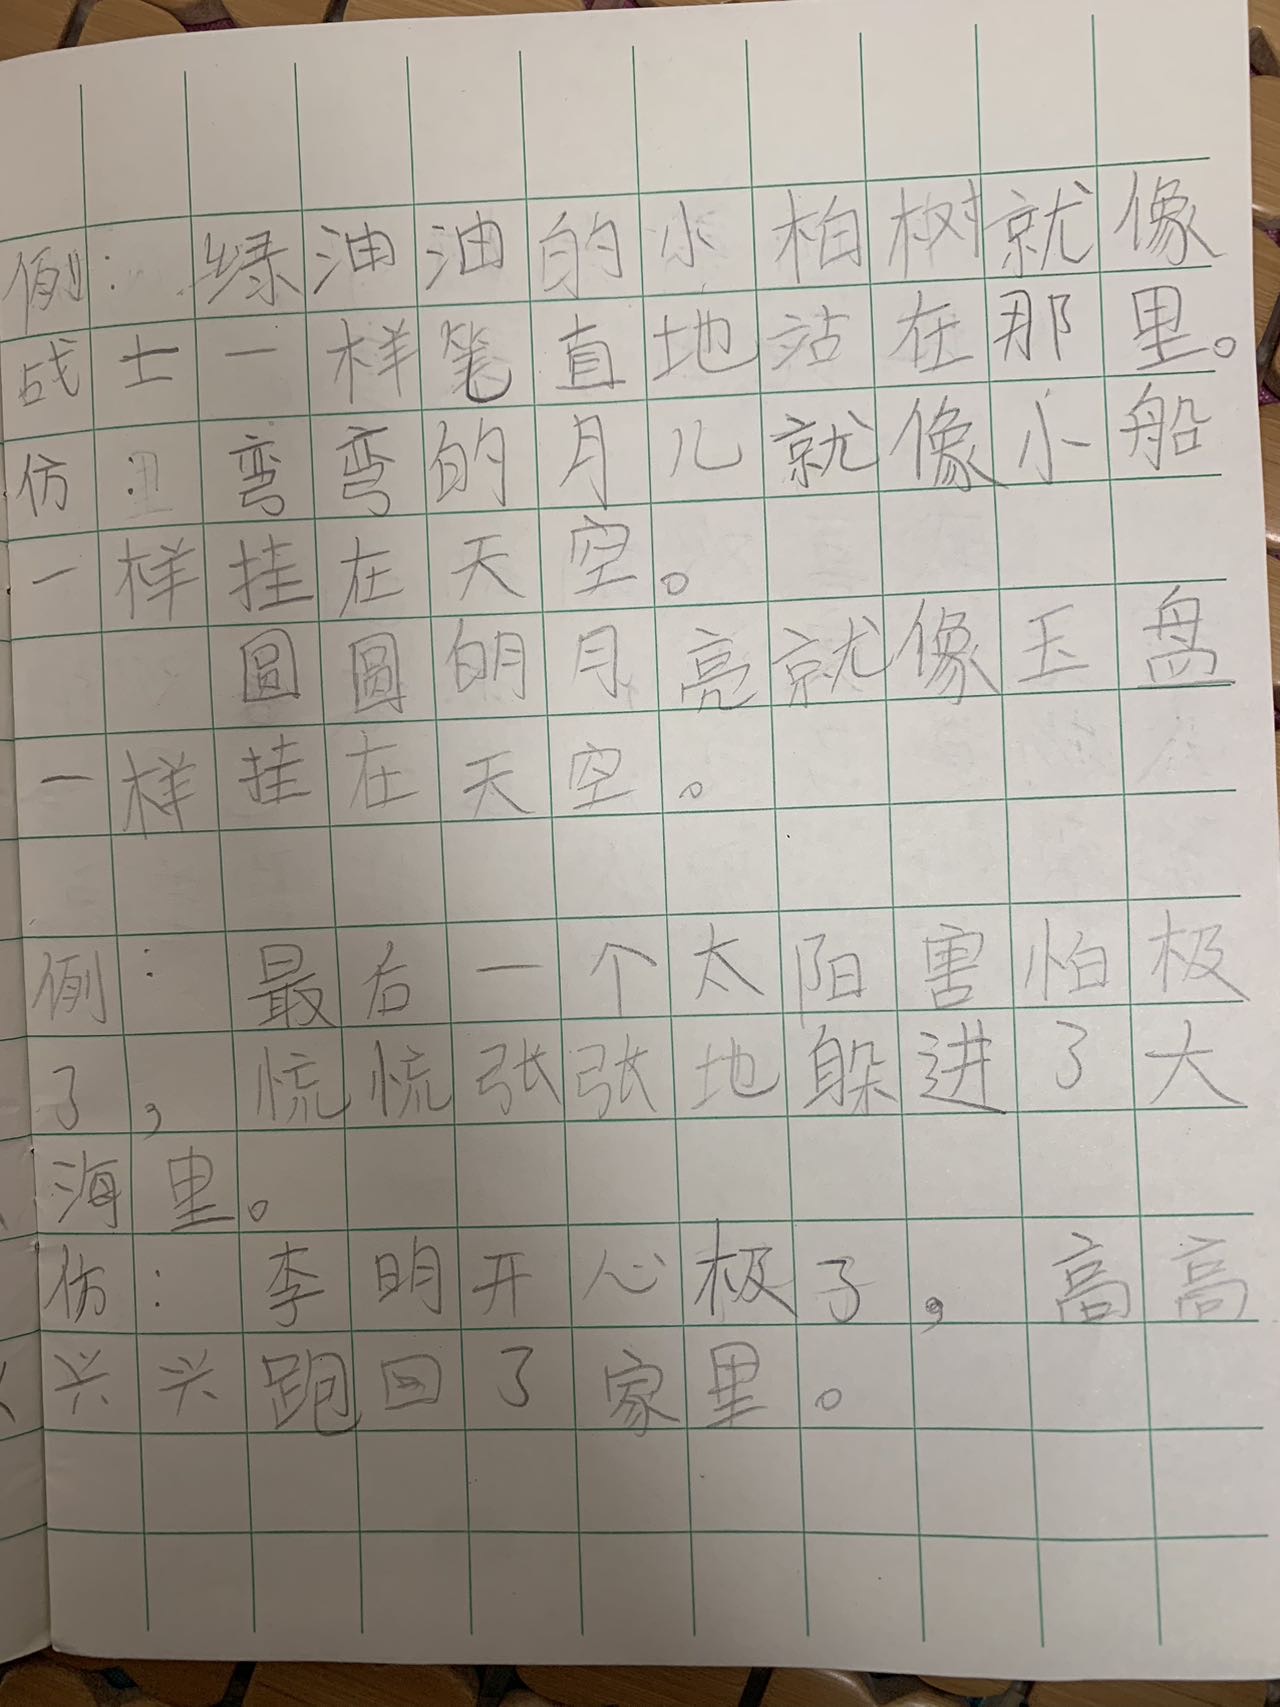 例：绿油油的小柏树就像
战士一样笔直地站在那里。
仿：弯弯的月儿就像小船
一样挂在天空。
圆圆的月亮就像玉盘
一样挂在天空。
例：最后一个太阳害怕极
了，慌慌张张地躲进了大
海里。
仿：李明开心极了，高高
兴兴跑回了家里。